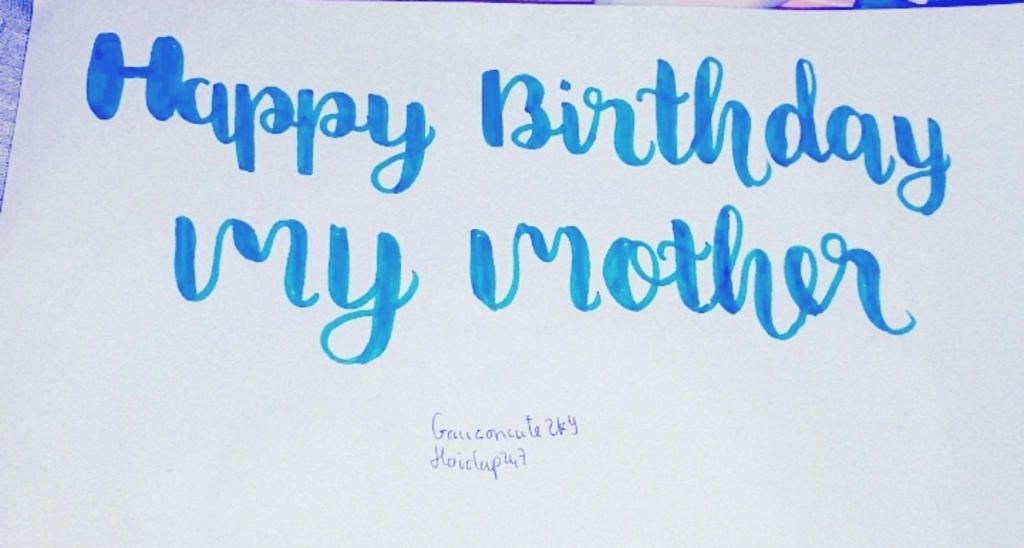 Happy Birthday
My Mother
Gauconcute2k9
Hoidap247